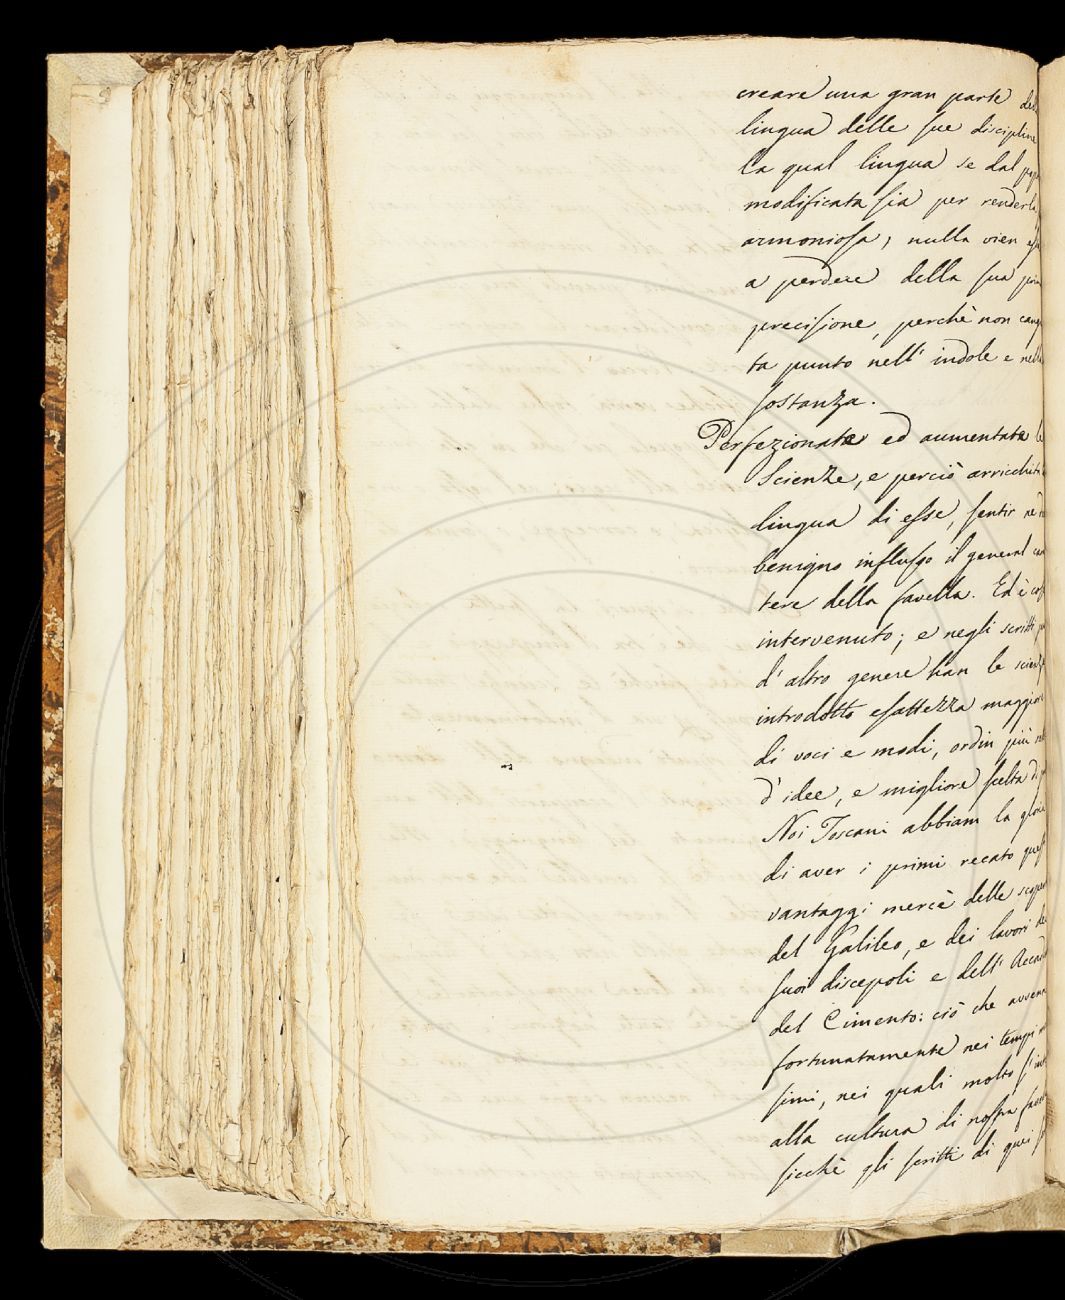 creare una gran parte del
lingua delle sue discipline
la qual lingua se dal
modificata sia per renderla
armoniosa, nulla vien
a perdere della sua
precisione, perchè non cang
ta punto nell' indole e nella
sostanza.
Perfezionate ed aumentate le
Scienze, e perciò arricchita
lingua di esse, sentir ne
benigno influsso il general
tere della favella. Ed è cos
intervenuto; e negli scritti
d' altro genere han le scienze
introdotto esattezza maggiore
di voci e modi, ordin più
d' idee, e migliore scelta di
Noi Toscani abbiam la gloria
di aver i primi recato quest
vantaggi mercè delle scope
del Galileo, e dei lavori de
suoi discepoli e dell' Accad
del Cimento: ciò che avvenn
fortunatamente nei tempi
simi, nei quali molto s' int
alla cultura di nostra fave
sicchè gli scritti di quei